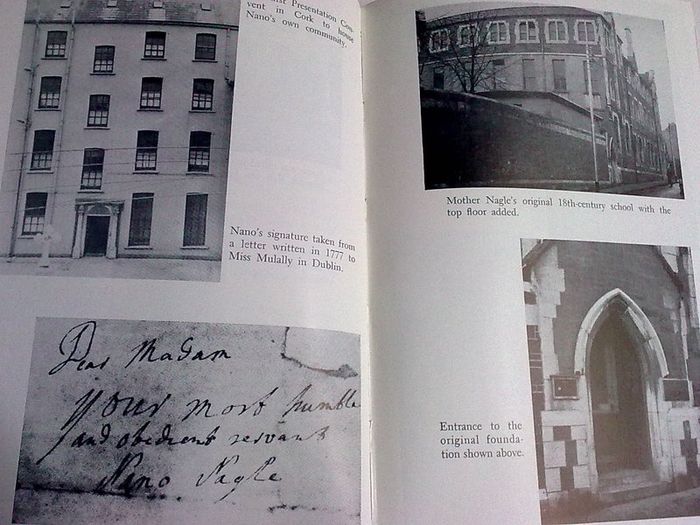 Presentation Con-
vent in Cork to house
Nano's own community.
Nano's signature taken from
a letter written in 1777 to
Miss Mulally in Dublin.
Dear Madam
your most humble
and obedient servant
Nano Nagle
Mother Nagle's original 18th-century school with the
top floor added.
Entrance to the
original founda-
tion shown above.